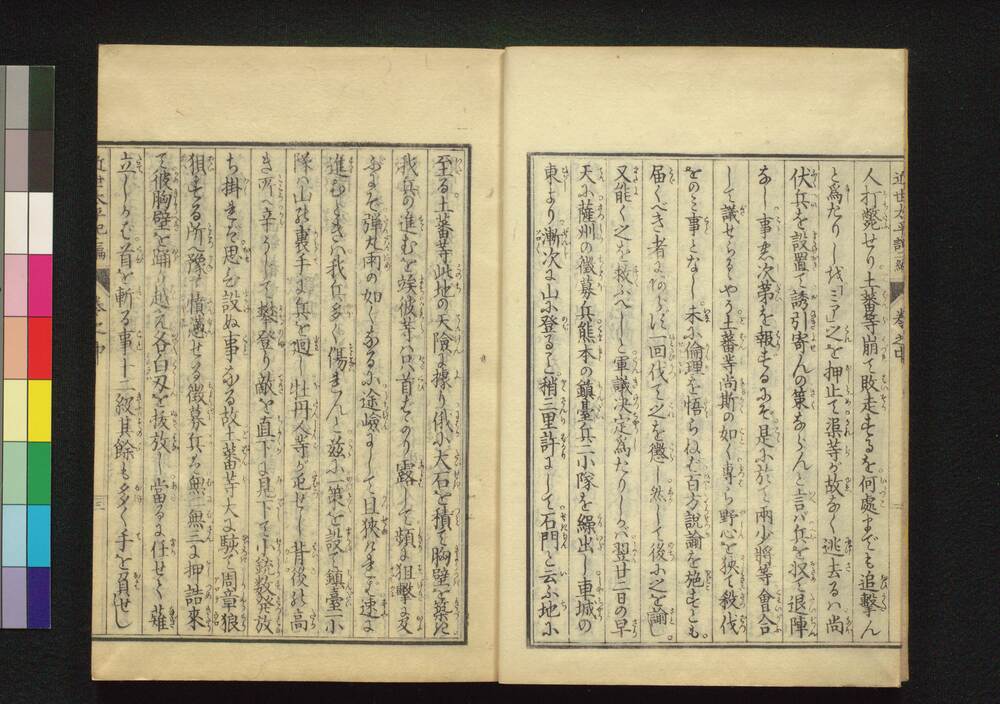 近世太平記二編 巻之中
人打斃せり土蕃等崩て敗走するを何處までも追撃ん
と為たりしが「ミア」之を押止て渠等が故なく逃去るハ尚
伏兵を設置て誘引寄んの策ならんと言バ兵を収て退陣
なし事の次第を報するにぞ是に於て両少将等會合
して議せらるゝやう土蕃等尚斯の如く専ら野心を挟て殺伐
をのミ事となし未に倫理を悟らねバ百方説諭を施すとも
届くべき者にあらバ一回伐て之を懲し然して後に之を諭し
又能く之を救ふべしと軍議决定為たりしが翌廿二日の早
天に薩州の徴募兵熊本の鎮臺兵二小隊を繰出し車城の
東より漸次に山に登ること稍三里許にして石門と云ふ地に
至る土蕃等此地の天險に據り俄に大石を積て胸壁を築き
我兵の進むを竢彼等ハ只首をのミ露して頻に狙撃に及
ぶにぞ弾丸雨の如くなるに途險にして且狹けれバ速に
進むときハ我兵多く傷れんと茲に一策を設け鎮臺一小
隊ハ山の裏手に兵を廻し牡丹人等が屯せし背後の高
き所へ辛うじて攀登り敵を直下に見下て小銃数発放
ち掛れバ思も設ぬ事なる故土蕃等大に騒ぎ周章狼
狽する所へ豫て憤懣せる徴募兵ハ無二無三に押詰来
て彼胸壁を踊り越え各白刃を抜放し當るに任せて薙
立しかバ首を斬る事十二級其餘も多く手を負せし
近世太平記二編 巻之中 三